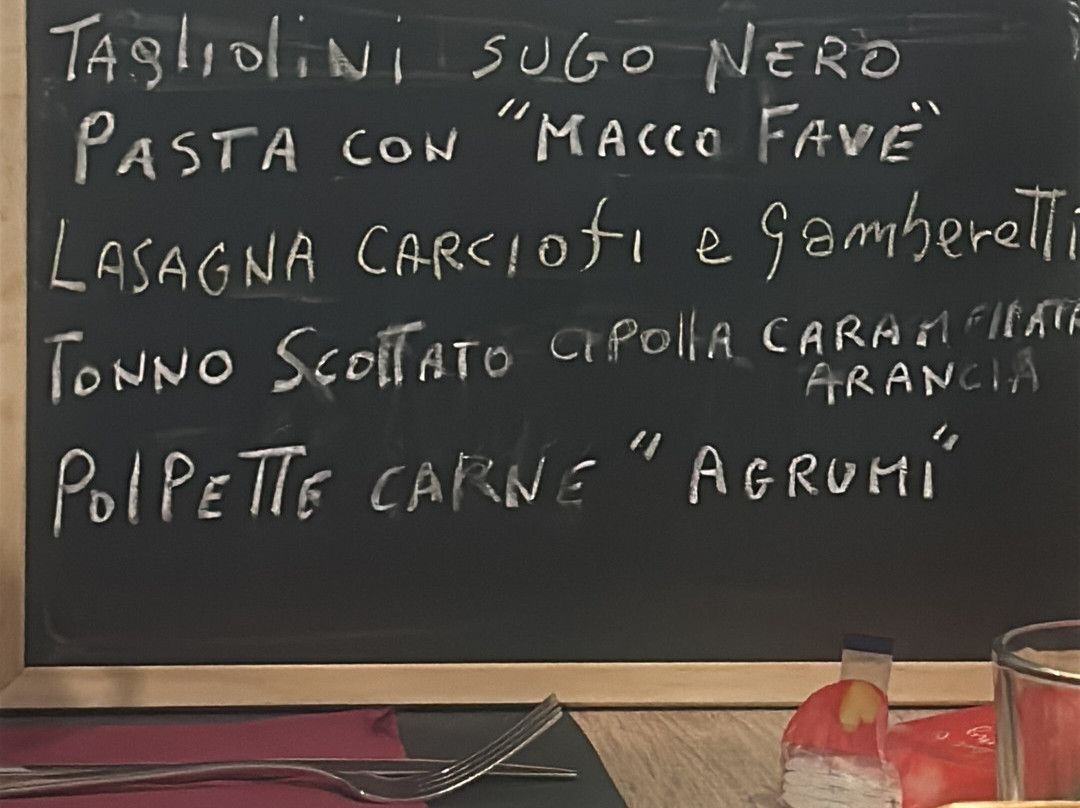 TAglIOliNi SUGO NERO
PASTA CON "MACCO FAVE"
LASAGNA CARCIOfI e gamberetti
TONNO SCOTTATO CIPOllA CARAM
ARANCIA
POlPETTE CARNE "AGRUMI"